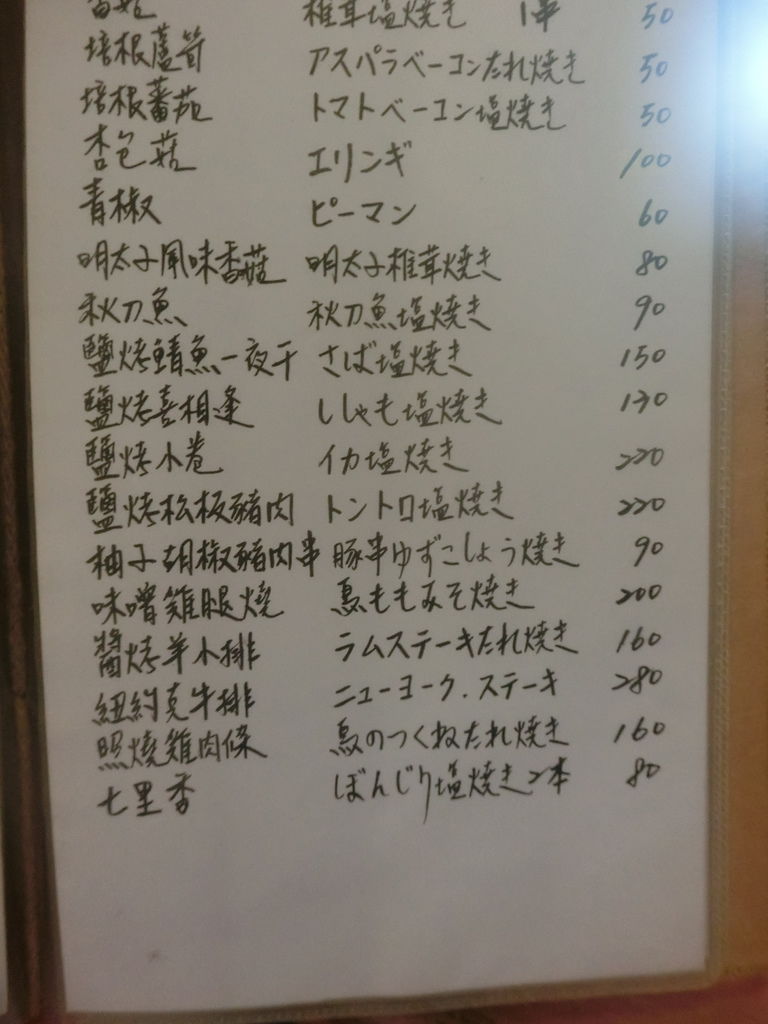 香菇 椎茸塩焼き 1串 50
培根蘆筍 アスパラベーコンたれ焼き 50
培根蕃茄 トマトベーコン塩焼き 50
杏包菇 エリンギ 100
青椒 ピーマン 60
明太子風味香菇 明太子椎茸焼き 80
秋刀魚 秋刀魚塩焼き 90
鹽烤鯖魚一夜干 さば塩焼き 150
鹽烤喜相逢 ししゃも塩焼き 130
鹽烤小卷 イカ塩焼き 220
鹽烤松板豬肉 トントロ塩焼き 220
柚子胡椒豬肉串 豚串ゆずこしょう焼き 90
味噌雞腿燒 鳥ももみそ焼き 200
醬烤羊小排 ラムステーキたれ焼き 160
紐約克牛排 ニューヨーク.ステーキ 280
照燒雞肉條 鳥のつくねたれ焼き 160
七里香 ぼんじり塩焼き2本 80